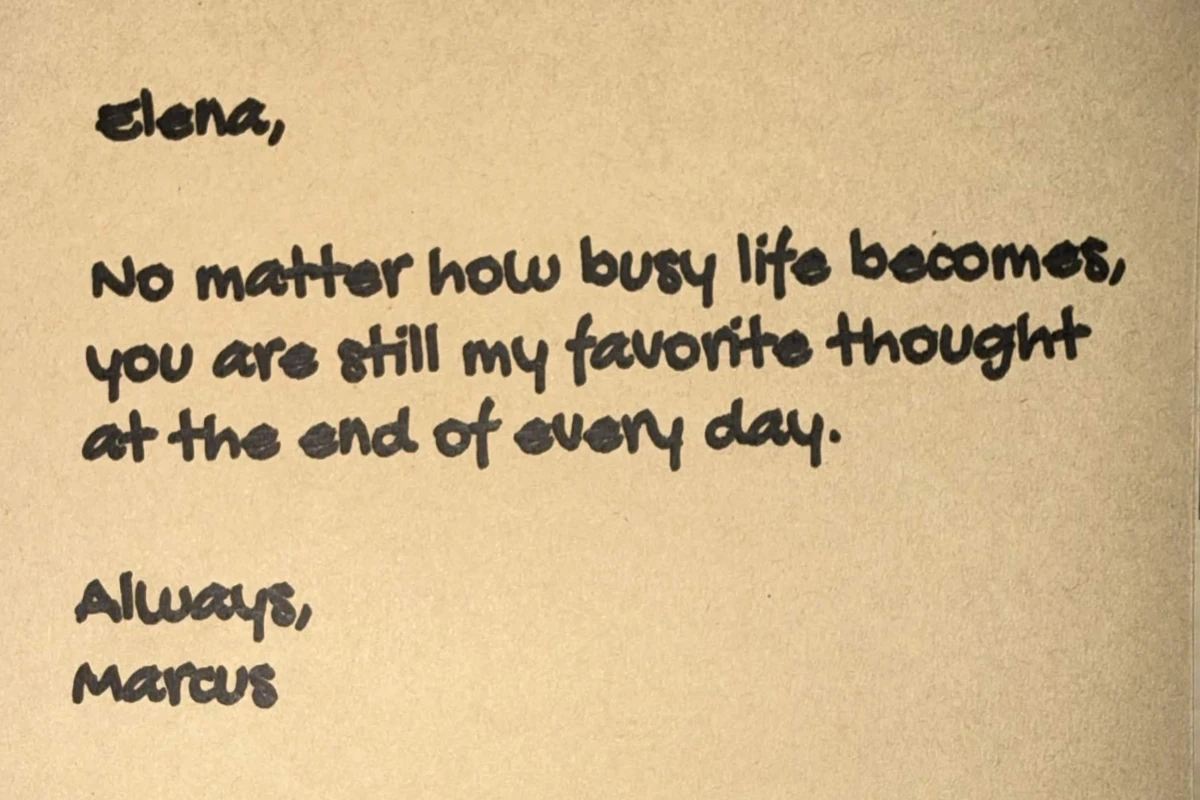 Elena,
No matter how busy life becomes,
you are still my favorite thought
at the end of every day.
Always,
Marcus